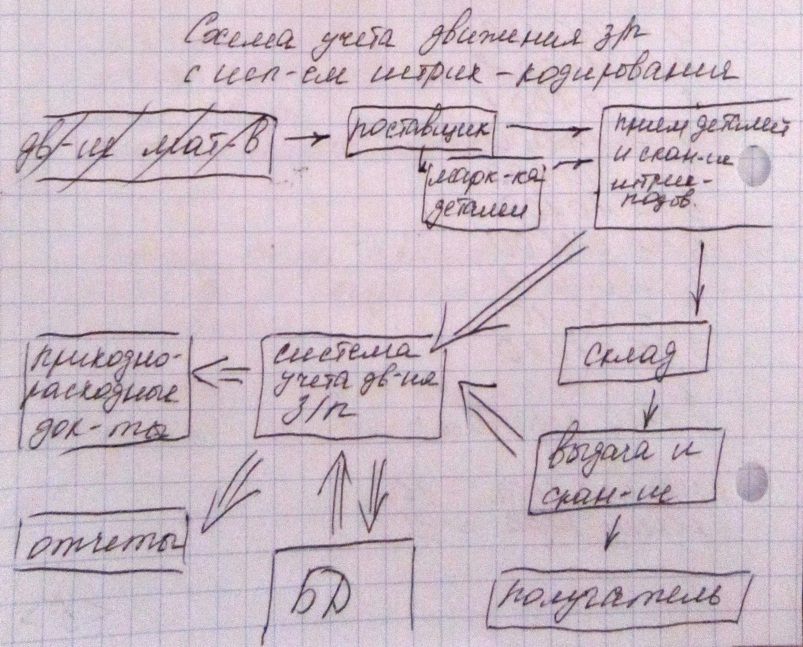 Схема учета движения з/п
с исп-ем штрих-кодирования
дв-ие мат-в
поставщик
прием деталей
и скан-ие
штрих-
кодов.
марк-ка
деталей
склад
выдача и
скан-ие
получатель
система
учета дв-ия
З/п
приходно-
расходные
док-ты
отчеты
БД